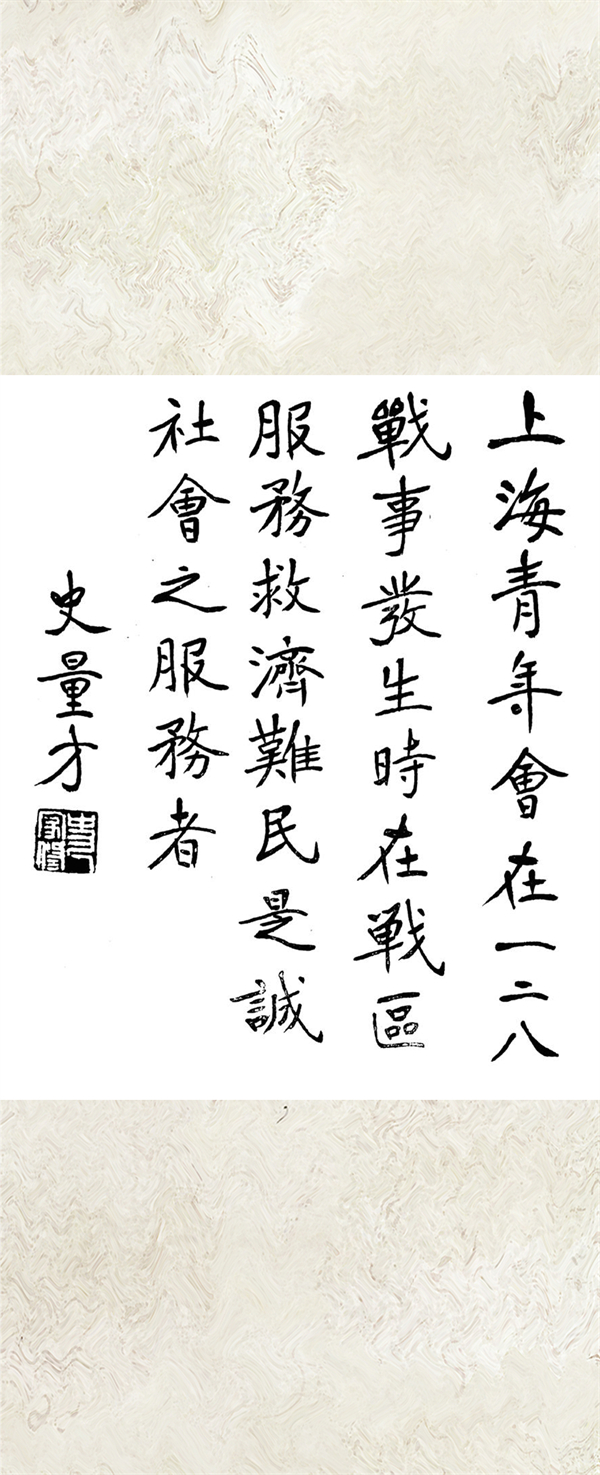 上海青年會在一二八
戰事發生時在戰區
服務救濟難民是誠
社會之服務者
史量才